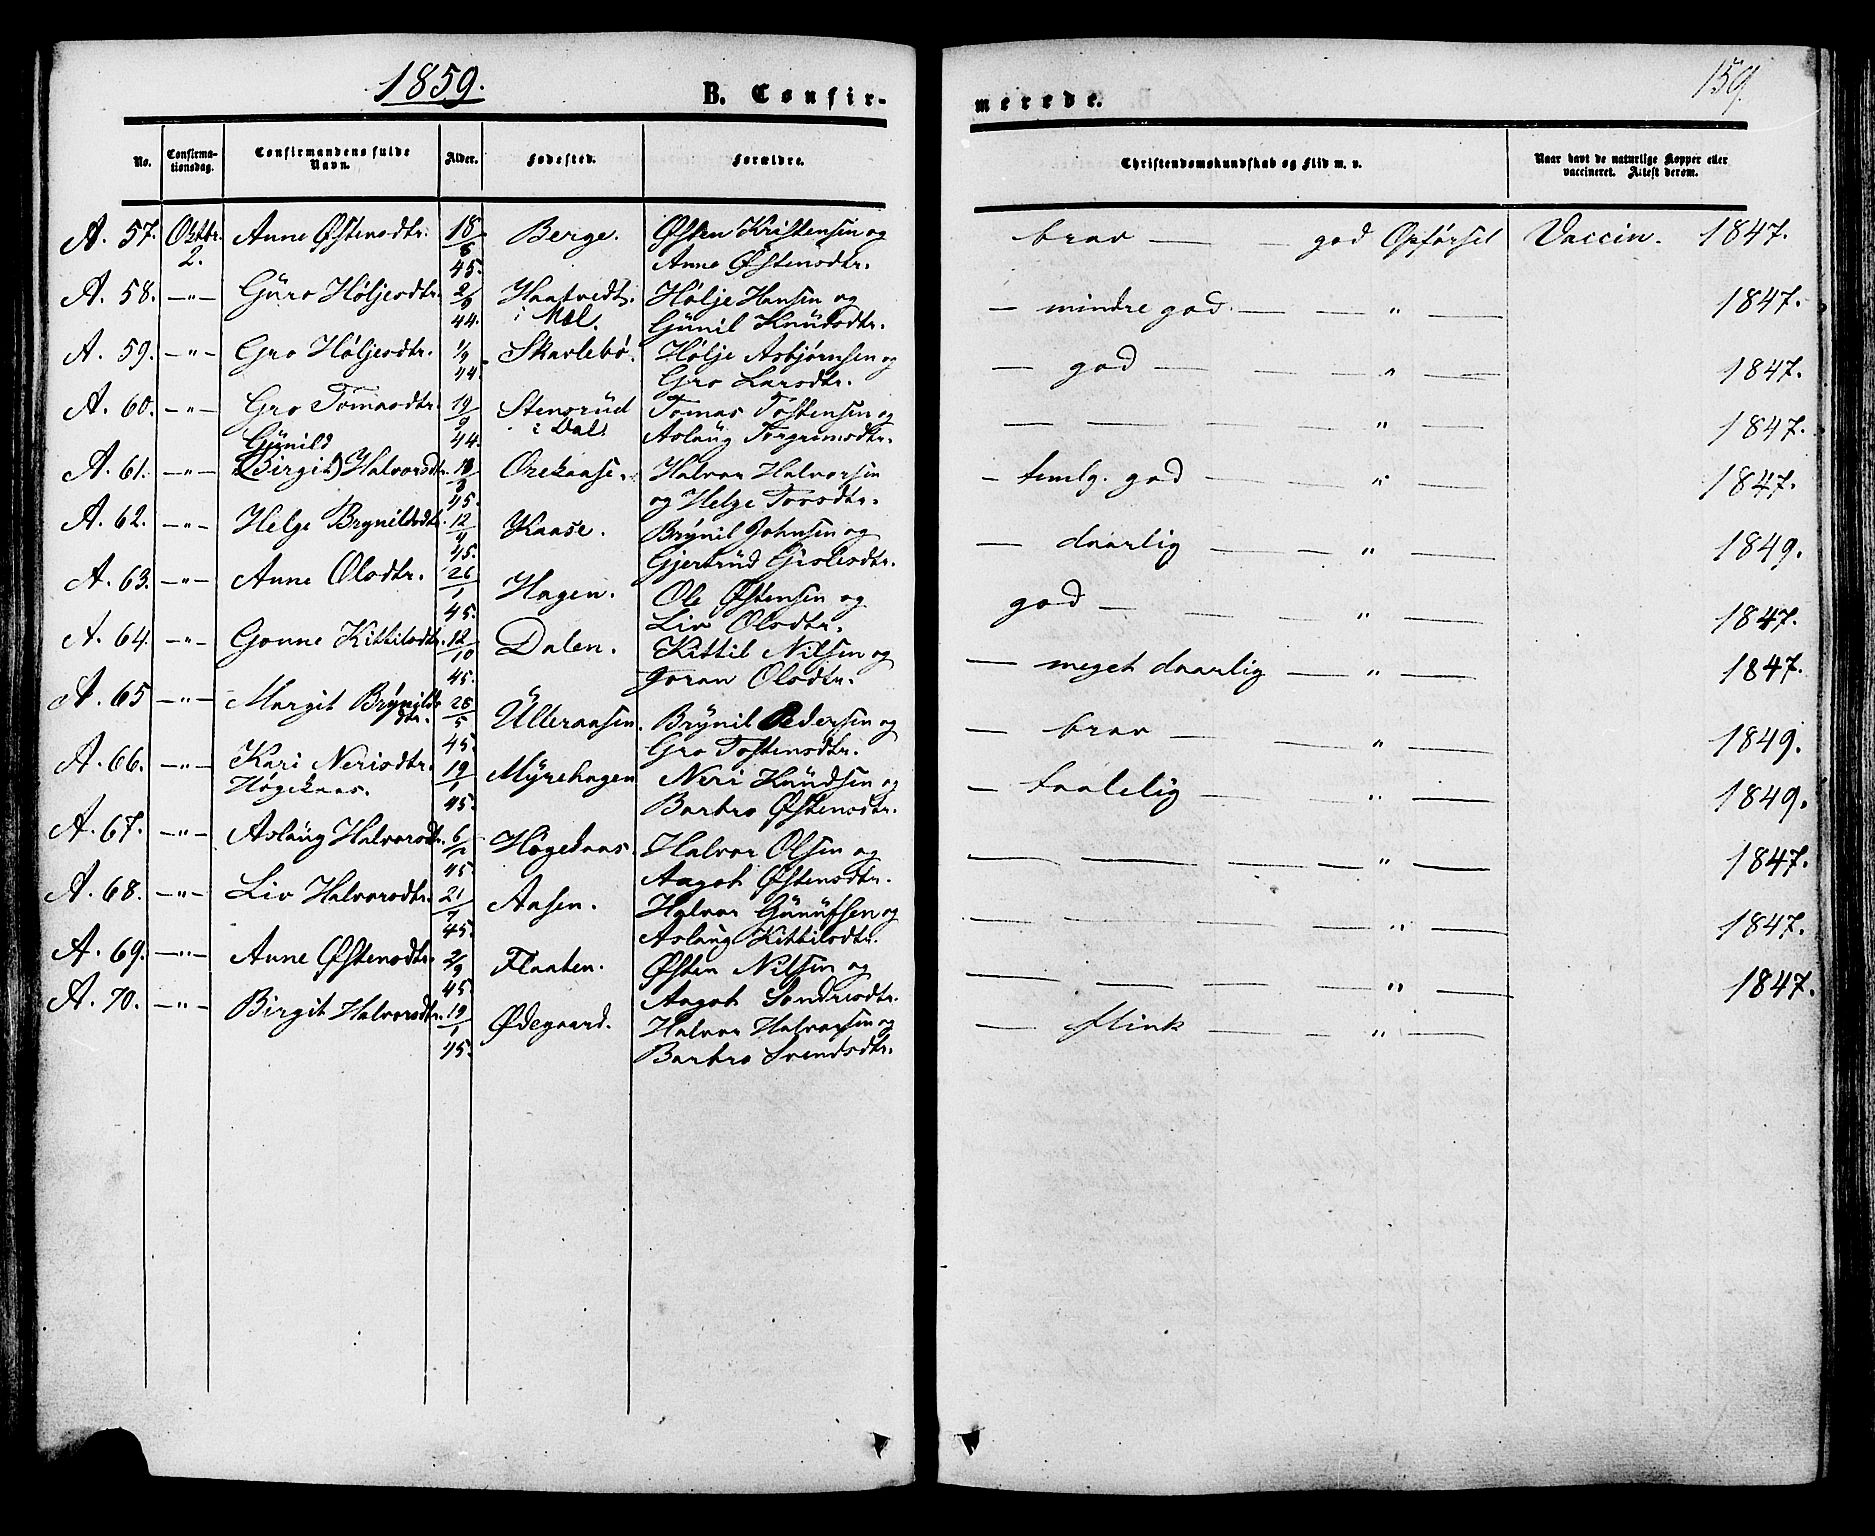 1859.
B. Confir-
merede.
159.
No.
Confirma-
tionsdag.
Confirmandens fulde
Navn.
Alder.
Fødested.
Forældre.
Christendomskundskab og Flid m. v.
Naar havt de naturlige Kopper eller
vaccineret. Attest derom.
A. 57. Oktbr. Anne Østensdtr. 18/6 Berge. Østen Kristensen og brav — — god Opførsel Vaccin. 1847.
2. 45. Anne Østensdtr.
A. 58. —"— Guro Høljesdtr. 2/9 Haatvedt Hølje Hansen og — mindre god — — " — 1847.
44. i Mel. Gunil Knudsdtr.
A. 59. —"— Gro Høljesdtr. 1/9 Skarlebø. Hølje Asbjørnsen og — god — — " — 1847.
44. Gro Larsdtr.
A. 60. —"— Gro Tomasdtr. 19/9 Stensrud Tomas Tostensen og — — — — " — 1847.
44. i Dal. Aslaug Torgrimsdtr.
Gunild
A. 61. —"— (Birgit) Halvorsdtr. 18/8 Halvor Halvorsen — temlg. god — — " — 1847.
45. og Helge Torsdtr.
A. 62. —"— Helge Brynildsdtr. 12/4 Kaase. Brynil Johnsen og — daarlig — — " — 1849.
45. Gjertrud Gislesdtr.
A. 63. —"— Anne Olsdtr. 26/1 Hagen. Ole Østensen og god — — — " — 1847.
45. Liv Olsdtr.
A. 64. —"— Gonne Kittilsdtr. 12/10 Dalen. Kittil Nilsen og — meget daarlig — " — 1847.
45. Joran Olsdtr.
A. 65 —"— Margit Brynilds 28/5 Ulleraasen. Brynil Pedersen og — brav — — " — 1849.
dtr. 45. Gro Tostensdtr.
A. 66. —"— Kari Nerisdtr. 19/1 Myrehagen Neri Knudsen og — taalelig — — " — 1849.
Høgekaas. 45. Barbro Østensdtr.
A. 67. —"— Aslaug Halvorsdtr. Høgekaas. Halvor Olsen og — — — — " — 1847.
45. Aagot Østensdtr.
A. 68. —"— Liv Halvorsdtr. 21/7 Aasen. Halvor Gunufsen og — — — — " — 1847.
45. Aslaug Kittilsdtr.
A. 69. —"— Anne Østensdtr. 2/9 Flaaten. Østen Nilsen og — — — — " — 1847.
45. Aagot Sondresdtr.
A. 70. —"— Birgit Halvorsdtr. 19/1 Ødegaard. Halvor Halvorsen og — flink — — " —
45. Barbro Svendsdtr.